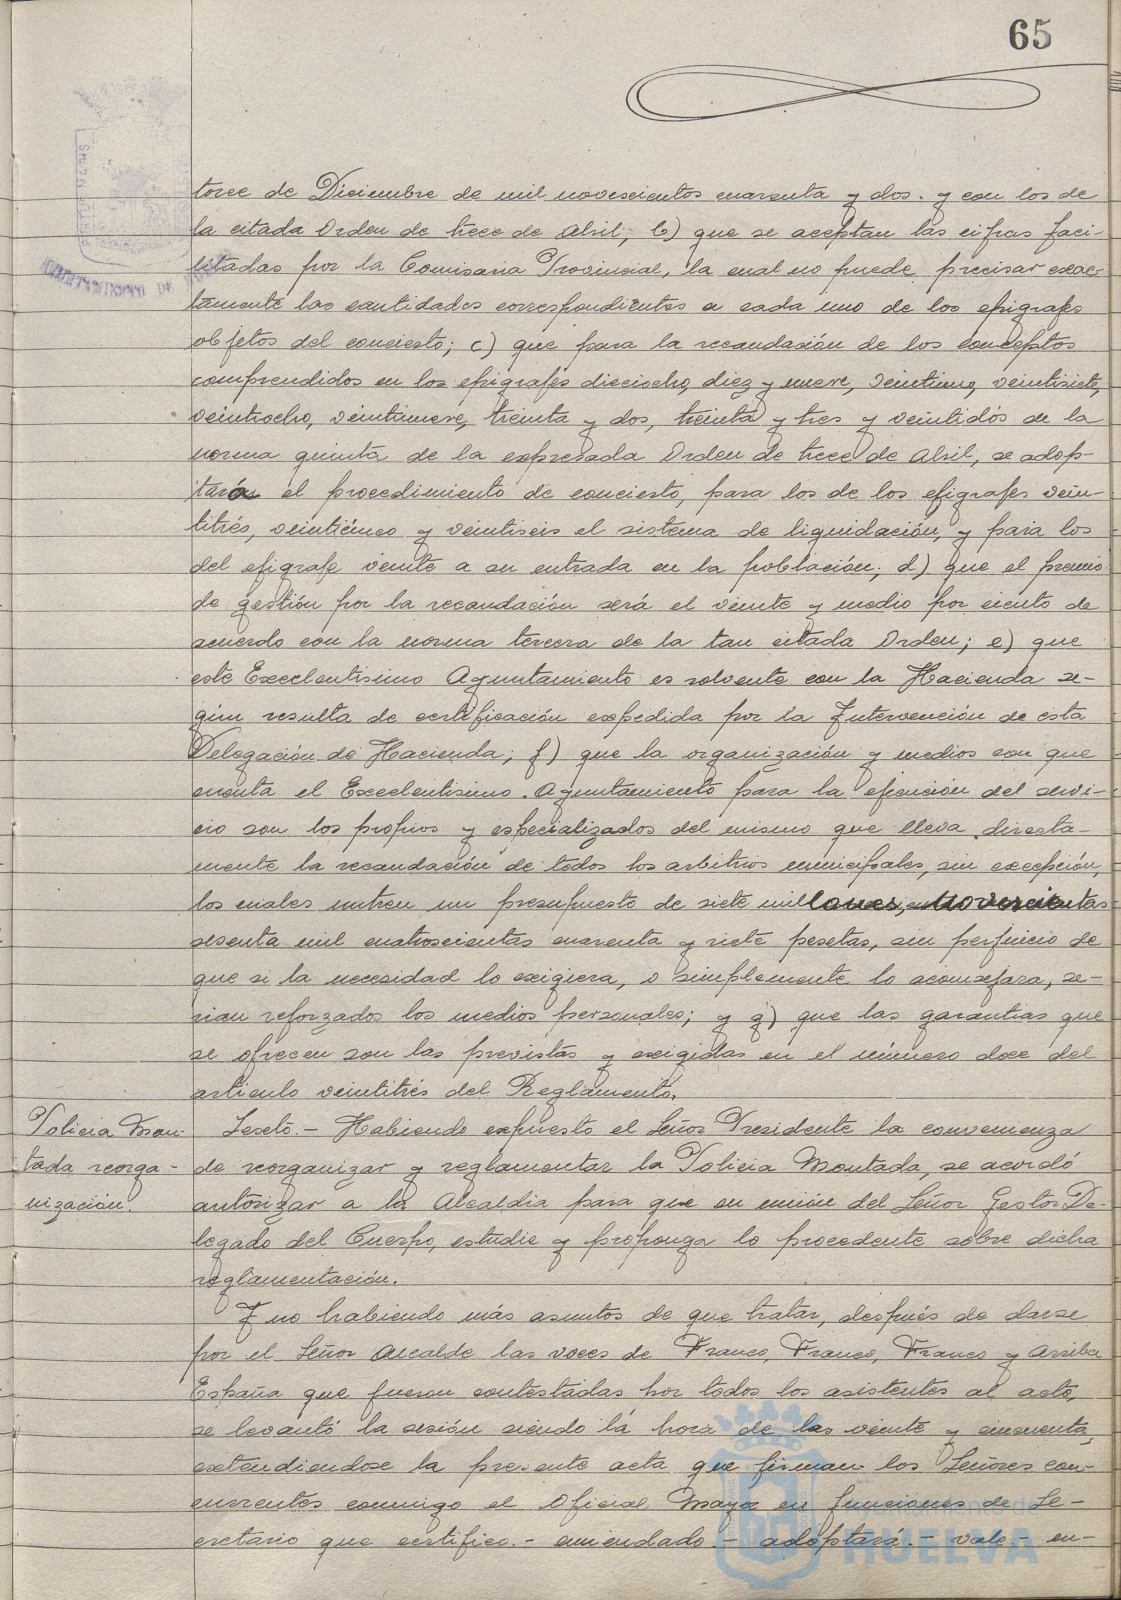 65
torce de Diciembre de mil novescientos cuarenta y dos. y con los de
la citada Orden de trece de Abril; b) que se aceptan las cifras faci-
litadas por la Comisaria Provincial, la cual no puede precisar exac-
tamente las cantidades correspondientes a cada uno de los epigrafes
objetos del concierto; c) que para la recaudación de los conceptos
comprendidos en los epigrafes dieciocho, diez y nueve, veintiuno, veintisiete,
veintiocho, veintinueve, treinta y dos, treinta y tres y veintidós de la
norma quinta de la expresada Orden de trece de Abril, se adop-
tará el procedimiento de concierto, para los de los epigrafes vein-
titrés, veinticinco y veintiseis el sistema de liquidación, y para los
del epigrafe veinte a su entrada en la población; d) que el premio
de gestión por la recaudación será el veinte y medio por ciento de
acuerdo con la norma tercera de la tan citada Orden; e) que
este Excelentisimo Ayuntamiento es solvente con la Hacienda se-
gún resulta de certificación expedida por la Intervención de esta
Delegación de Hacienda; f) que la organización y medios con que
cuenta el Excelentisimo. Ayuntamiento para la ejecución del servi-
cio son los propios y especializados del mismo que lleva directa-
mente la recaudación de todos los arbitrios municipales, sin excepción,
los cuales nutren un presupuesto de siete millones, novescientas
sesenta mil cuatroscientas cuarenta y siete pesetas, sin perjuicio de
que si la necesidad lo exigiera, o simplemente lo aconsejara, se-
rian reforzados los medios personales; y g) que las garantias que
se ofrecen son las previstas y exigidas en el número doce del
articulo veintitrés del Reglamento.
Policia Mon-
tada reorga-
nización.
Sexto.- Habiendo expuesto el Señor Presidente la convenienza
de reorganizar y reglamentar la Policia Montada, se acordó
autorizar a la Alcaldia para que en unión del Señor Gestor De-
legado del Cuerpo, estudie y proponga lo procedente sobre dicha
reglamentación.
Y no habiendo más asuntos de que tratar, después de darse
por el Señor Alcalde las voces de Franco, Franco, Franco y Arriba
España que fueron contestadas por todos los asistentes al acto,
se levantó la sesión siendo la hora de las veinte y cincuenta,
extendiendose la presente acta que firman los Señores con-
currentes conmigo el Oficial Mayor en funciones de Se-
cretario que certifico.- enmendado.- adoptará.- vale- en-
Ayuntamiento de
HUELVA